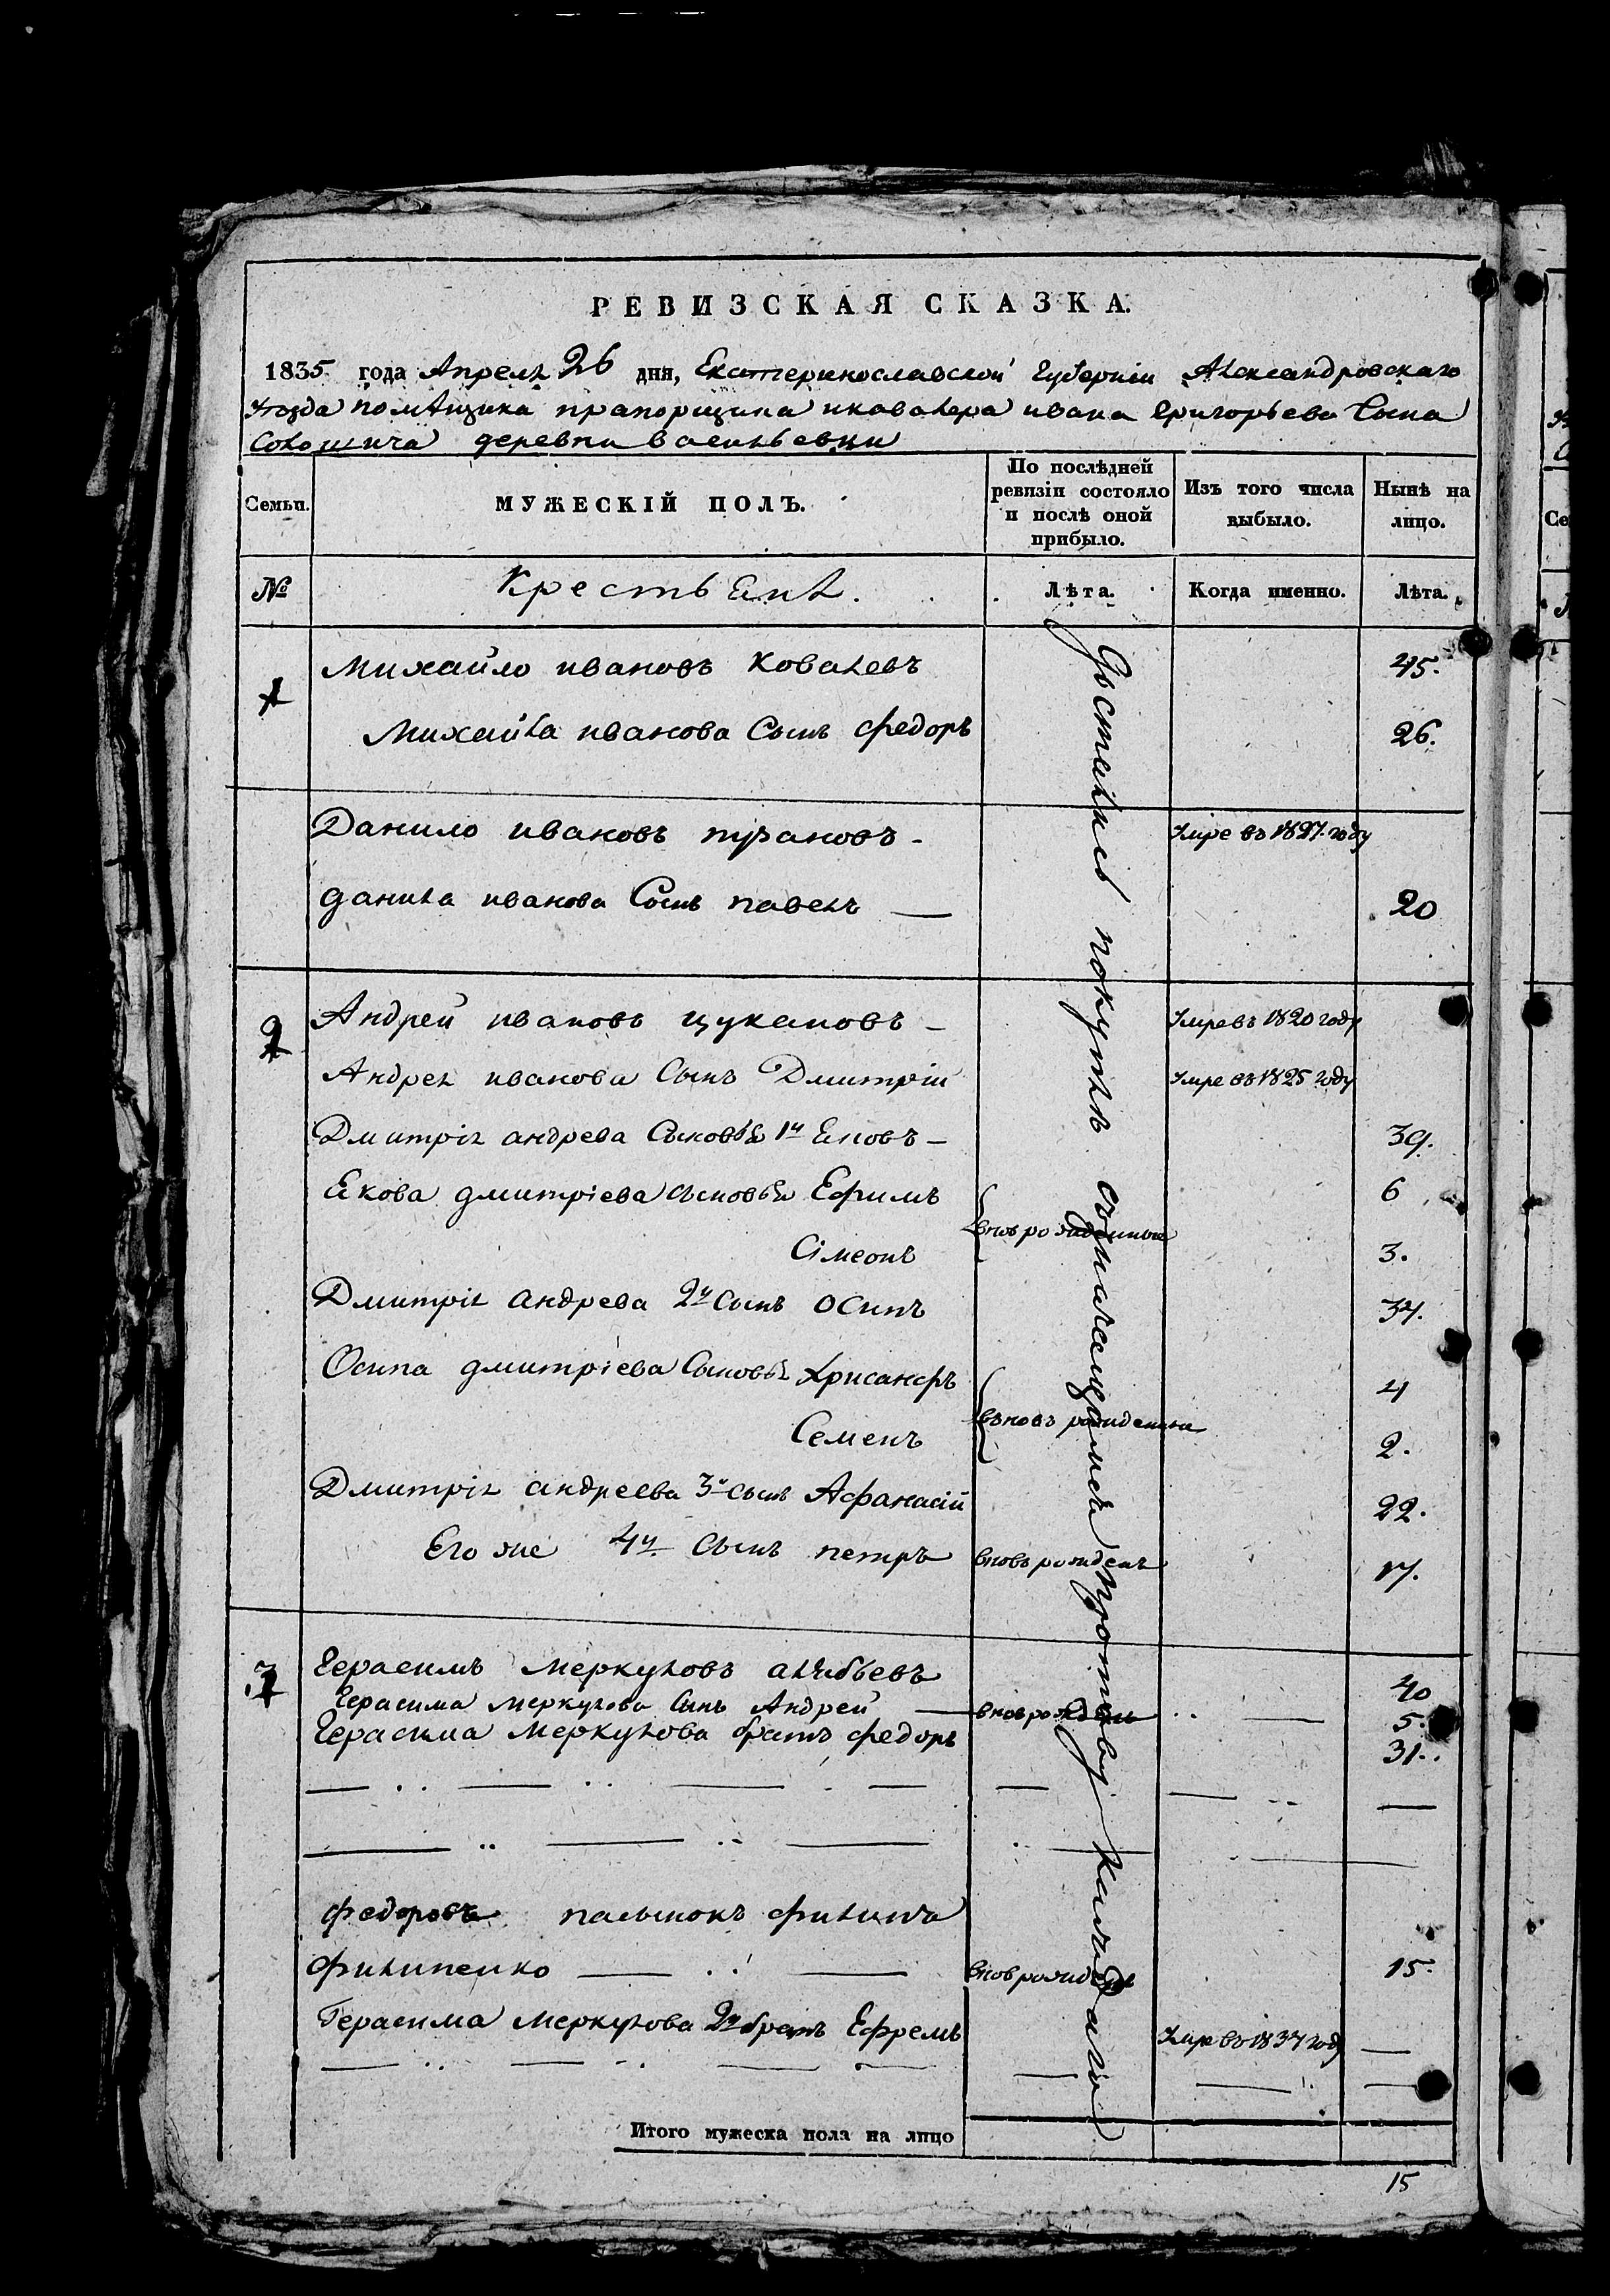 РЕВИЗСКАЯ СКАЗКА.
1835 года Апреля 26 дня, Екатеринославской Губернiи Александровскаго
Уезда помѣщика прапорщика и кавалера ивана Григорьева Сына
деревни васильевки
Семьи.
МУЖЕСКІЙ ПОЛЪ.
По послѣдней ревизіи состояло и послѣ оной прибыло.
Изъ того числа выбыло.
Нынѣ на лицо.
№
Крестьяня.
Лѣта.
Когда именно.
Лѣта.
1
Михайло ивановъ Ковалевъ
45.
Михайла иванова Сынъ федоръ
26.
Данило ивановъ
Умре въ 1827 году
данила иванова Сынъ павелъ —
20
2
Андрей ивановъ цукановъ —
Умре въ 1820 году
Андрея иванова Сынъ Дмитрiй
Умре въ 1825 году
Дмитрiя андрева Сыновья 1й Яковъ —
39.
Якова дмитрiева сыновья Ефимъ
6
вновь рожденныя
Сiмеонъ
3.
Дмитрiя андрева 2й Сынъ Осипъ
34.
Осипа дмитрiева Сыновья Хрисанфъ
4
вновь рожденныя
Семенъ
2.
Дмитрiя андреева 3й сынъ Афанасiй
22.
Его же 4й сынъ петръ
вновь рожденъ
17.
3
Герасимъ Меркуловъ
40
Герасима Меркулова Сынъ Андрей —
вновь рожденъ
5.
Герасима Меркулова братъ федоръ
31.
федорова пасынокъ филипъ
филипенко —
вновь рожденъ
15.
Герасима Меркулова 2й братъ Ефремъ
Умре въ 1834 году —
Достались покупкѣ
противу каждаго
Итого мужеска пола на лицо
15